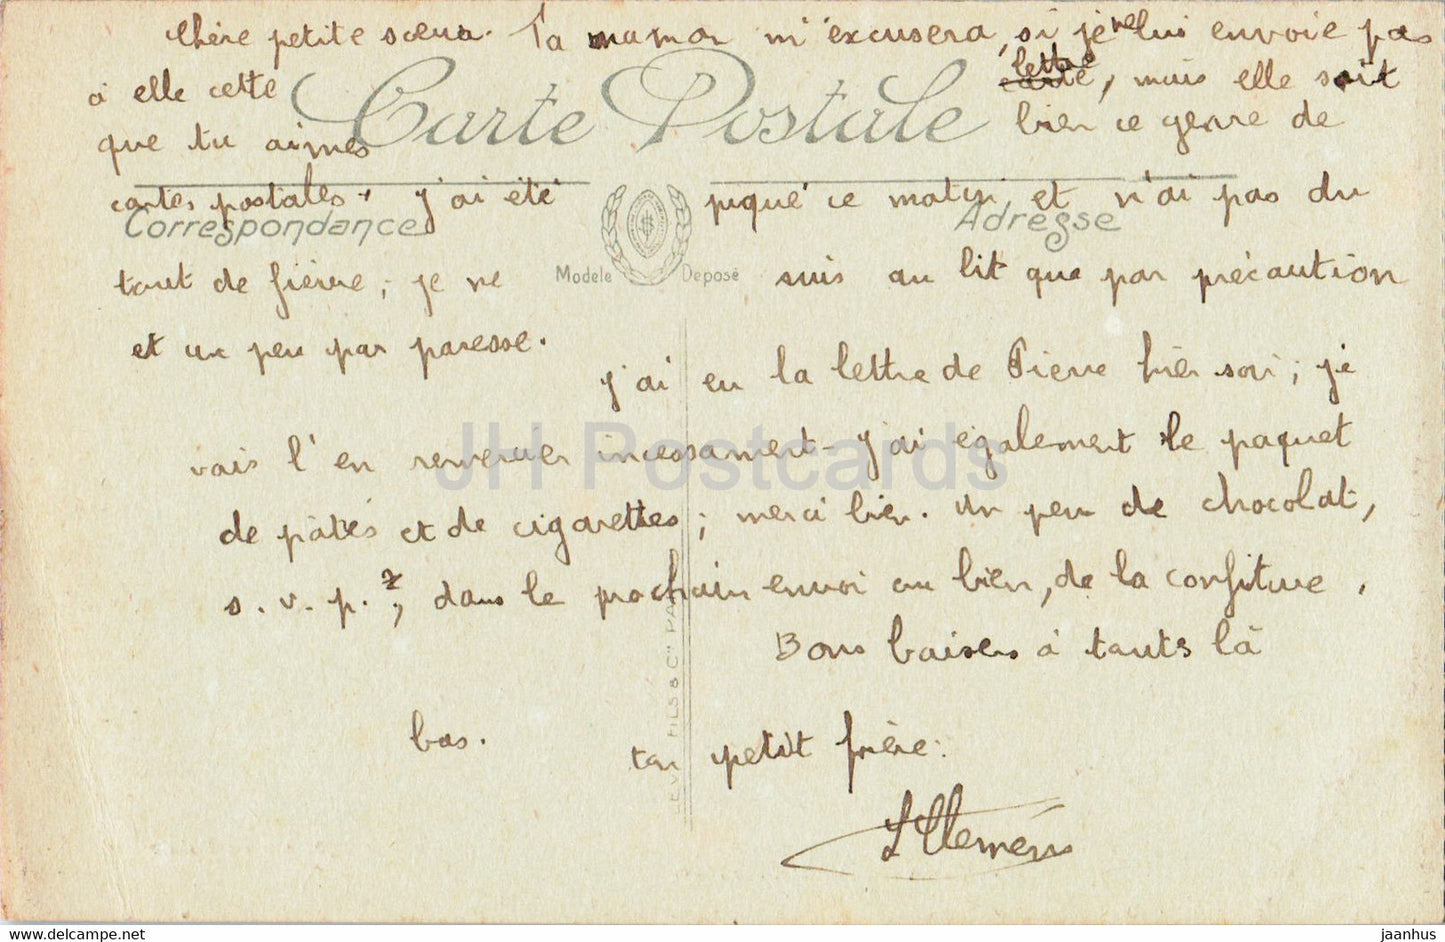 Chère petite sœur. Ta maman m'excusera, si je ne lui envoie pas
à elle cette lettre, mais elle sait
Carte Postale
que tu aimes bien ce genre de
cartes postales. j'ai été piqué ce matin, et n'ai pas du
Correspondance Adresse
tout de fièvre; je ne suis au lit que par précaution
Modele Deposé
et un peu par paresse.
j'ai eu la lettre de Pierre hier soir; je
vais l'en remercier incessament. j'ai également le paquet
JH Postcards
de pâtés et de cigarettes; merci bien. Un peu de chocolat,
s.v.p.?, dans le prochain envoi ou bien, de la confiture.
Bons baisers à touts là
bas. ton petit frère:
FILS & Cie PARIS
www.delcampe.net jaanhus